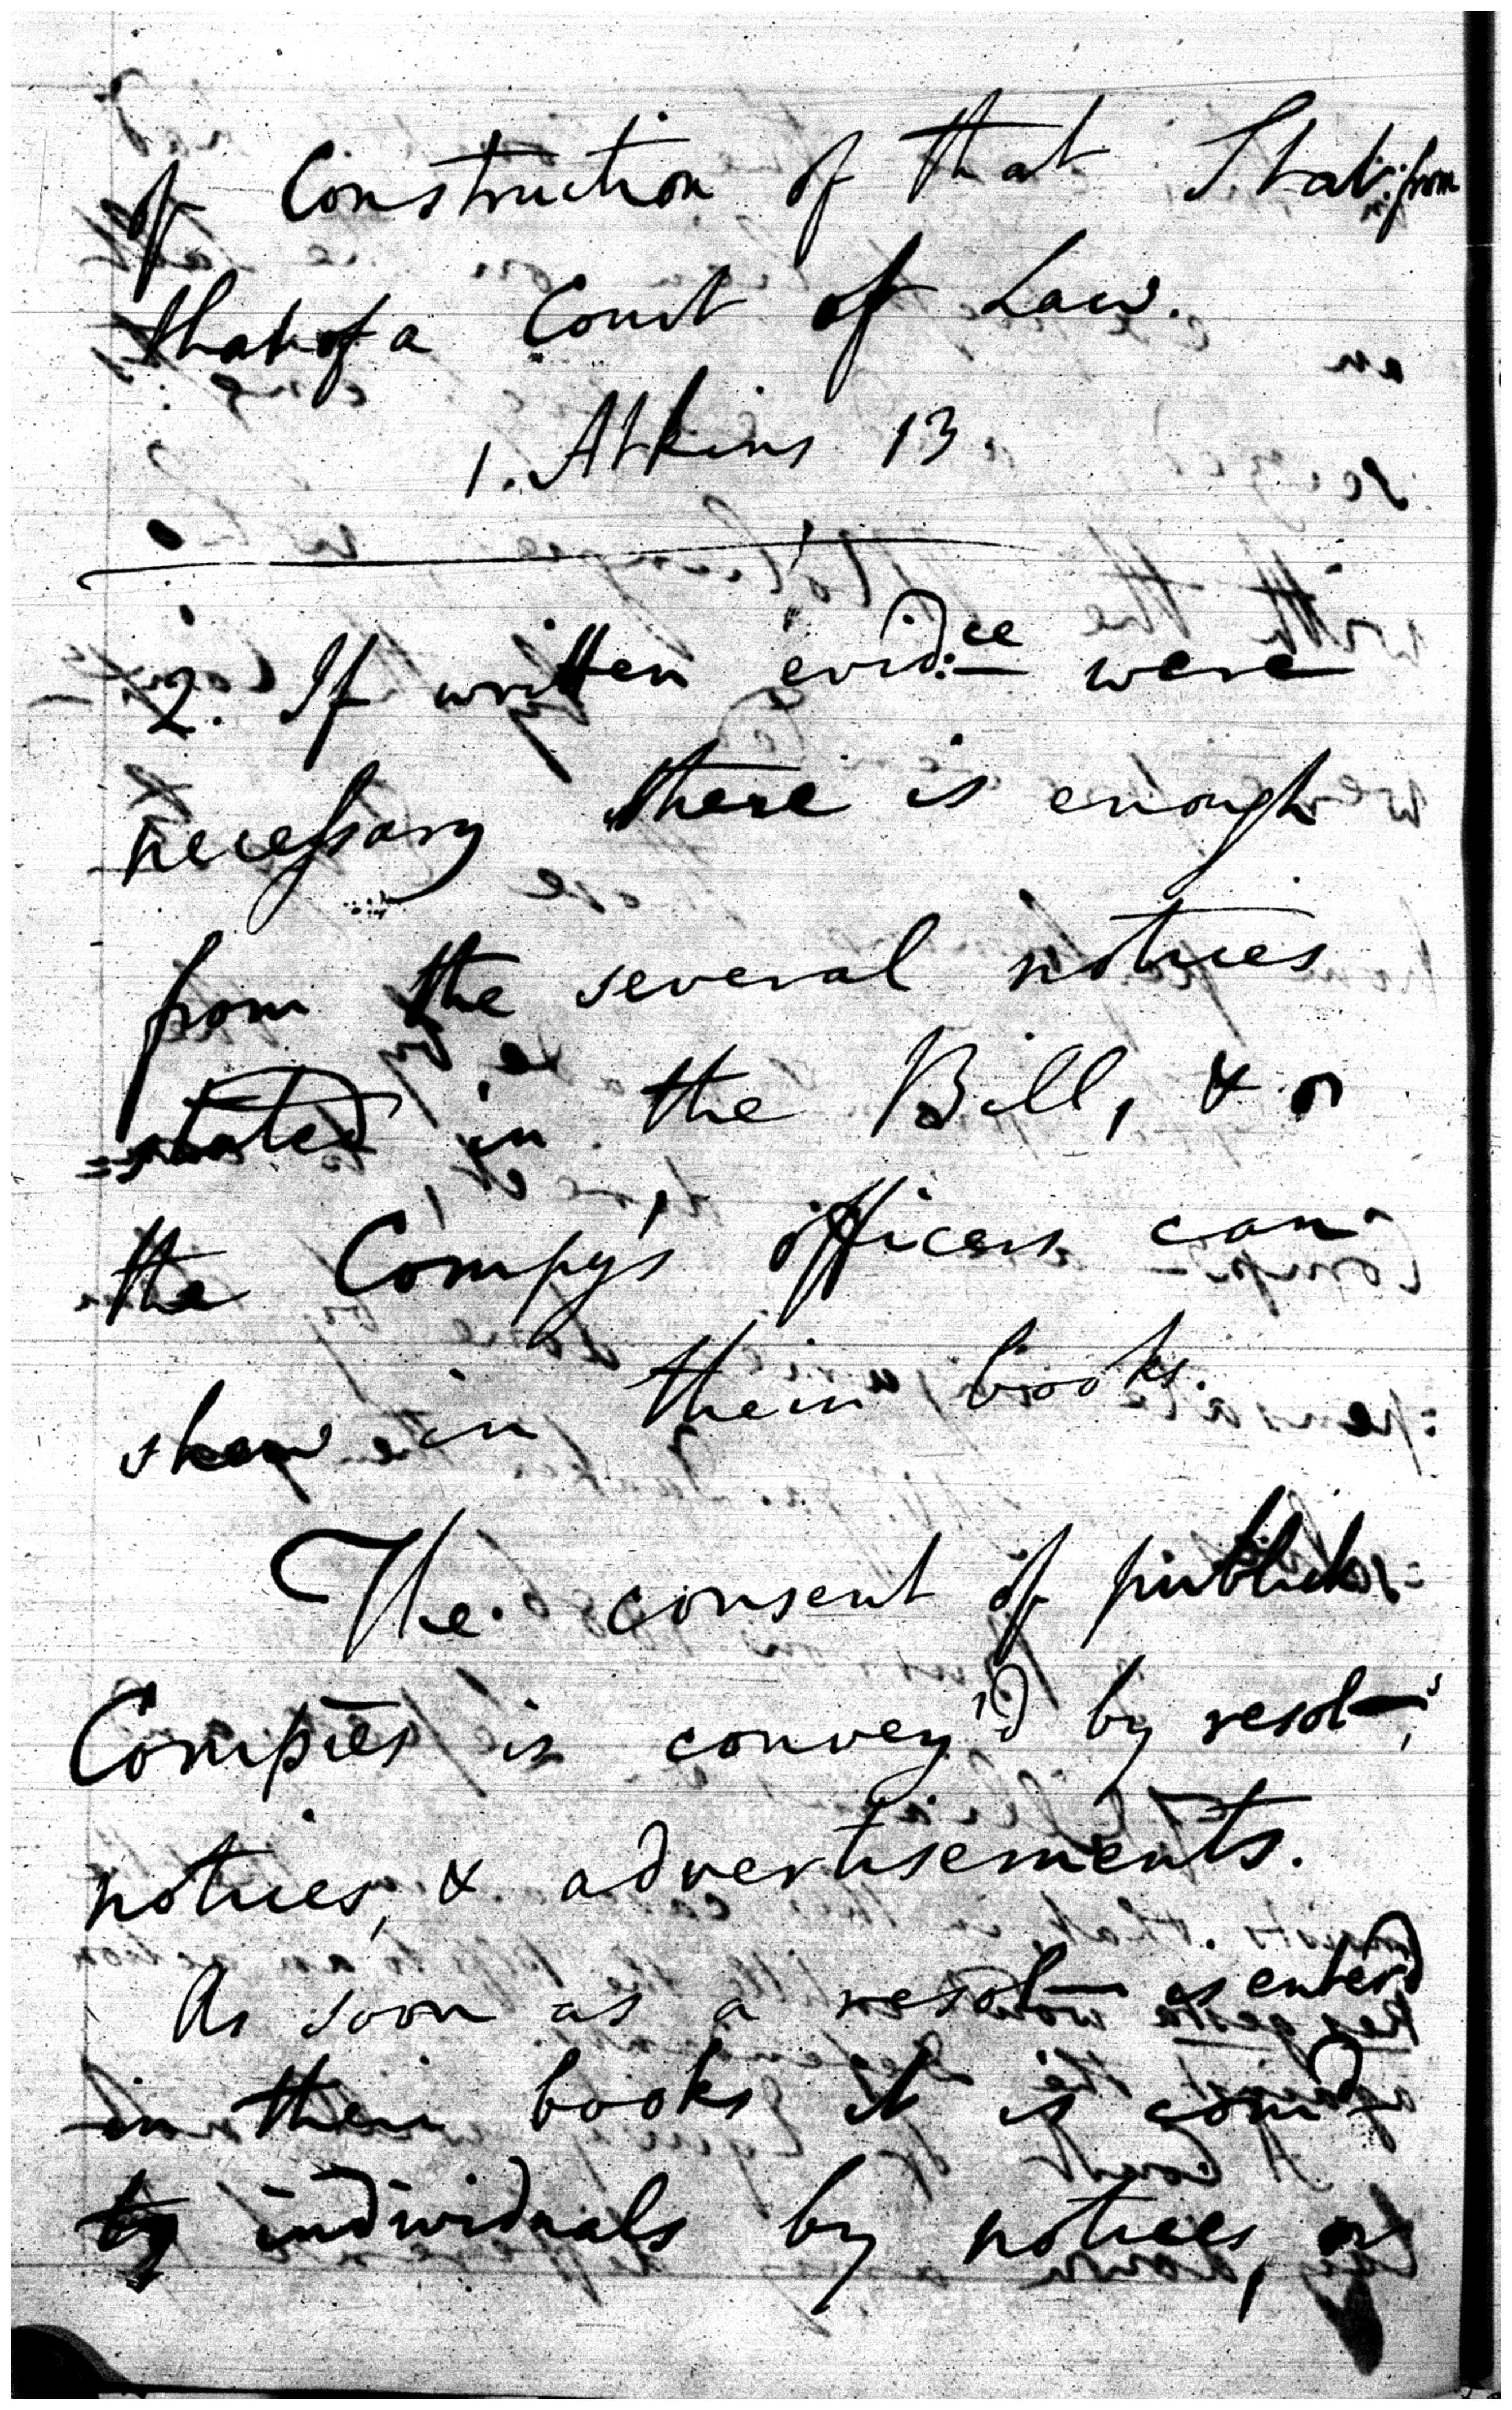 of Construction of that Stat: from
that of a Court of Law.
1. Atkins 13.
2. If written evid:ce were
necessary there is enough
from the several notices
stated in the Bill, & or
the Compy's officers can
shew in their books.
The consent of publick
Compies is convey'd by resol—s,
notices, & advertisements.
As soon as a resol— is enter'd
in their books it is com'd
to individuals by notices, or